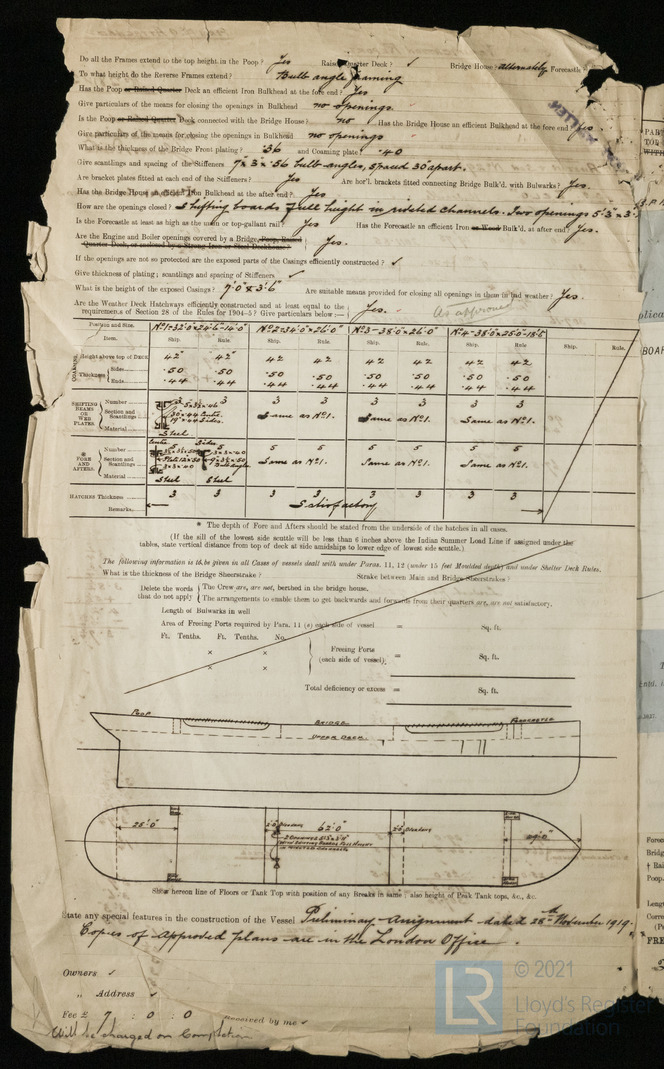 Do all the Frames extend to the top height in the Poop? Yes Raised Quarter Deck? ✓ Bridge House? alternately Forecastle
To what height do the Reverse Frames extend? Bulb angle framing
Has the Poop or Raised Quarter Deck an efficient Iron Bulkhead at the fore end? Yes
Give particulars of the means for closing the openings in Bulkhead no openings
Is the Poop or Raised Quarter Deck connected with the Bridge House? no Has the Bridge House an efficient Bulkhead at the fore end Yes
Give particulars of the means for closing the openings in Bulkhead no openings
What is the thickness of the Bridge Front plating? .36 and Coaming plate .40
Give scantlings and spacing of the Stiffeners 7 x 3 x .56 bulb angles, spaced 30" apart.
Are bracket plates fitted at each end of the Stiffeners? Yes Are hor'l. brackets fitted connecting Bridge Bulk'd. with Bulwarks? Yes.
Has the Bridge House an Iron Bulkhead at the after end? Yes
How are the openings closed? Shifting boards full height in riveted channels. Two openings 5'3" x 3'
Is the Forecastle at least as high as the main or top-gallant rail? Yes Has the Forecastle an efficient Iron or Wood Bulk'd, at after end? Yes.
Are the Engine and Boiler openings covered by a Bridge, Poop, Raised
Quarter Deck, or enclosed by a Strong Iron or Steel Deckhouse? Yes.
If the openings are not so protected are the exposed parts of the Casings efficiently constructed? ✓
Give thickness of plating; scantlings and spacing of Stiffeners ✓
What is the height of the exposed Casings? 7'0" & 3'6" Are suitable means provided for closing all openings in them in bad weather? Yes.
Are the Weather Deck Hatchways efficiently constructed and at least equal to the
requirements of Section 28 of the Rules for 1904-5? Give particulars below:— Yes. As approved
Position and Size. No1-32'0"x24'6"-14'0" No2-34'0"x26'0" No3-38'0"x26'0" No4-38'0"x25'0"-18'6"
Item. Ship. Rule. Ship. Rule. Ship. Rule. Ship. Rule. Ship. Rule.
COAMINGS Height above top of DECK 42" 42" 42 42 42 42 42 42
Thickness Sides .50 .50 .50 .50 .50 .50 .50 .50
Ends .44 .44 .44 .44 .44 .44 .44 .44
SHIFTING BEAMS OR WEB PLATES Number 3 3 3 3 3 3 3 3
Section and Scantlings Same as No1. Same as No1. Same as No1.
Material Steel
* FORE AND AFTERS. Number Centre 5 Sides 5 5 5 5 5 5 5
Section and Scantlings Same as No1. Same as No1. Same as No1.
Material Steel Steel
HATCHES Thickness 3 3 3 3 3 3 3 3
Remarks. Satisfactory
* The depth of Fore and Afters should be stated from the underside of the hatches in all cases.
(If the sill of the lowest side scuttle will be less than 6 inches above the Indian Summer Load Line if assigned under the
tables, state vertical distance from top of deck at side amidships to lower edge of lowest side scuttle.)
The following information is to be given in all Cases of vessels dealt with under Paras. 11, 12 (under 15 feet Moulded depth) and under Shelter Deck Rules.
What is the thickness of the Bridge Sheerstrake? Strake between Main and Bridge Sheerstrakes?
Delete the words The Crew are, are not, berthed in the bridge house.
that do not apply The arrangements to enable them to get backwards and forwards from their quarters are, are not satisfactory.
Length of Bulwarks in well
Area of Freeing Ports required by Para. 11 (e) each side of vessel = Sq. ft.
Ft. Tenths. Ft. Tenths. No.
×
×
Freeing Ports
(each side of vessel) = Sq. ft.
Total deficiency or excess = Sq. ft.
POOP BRIDGE FORECASTLE
UPPER DECK
25'0" 62'0" 29'0"
Show hereon line of Floors or Tank Top with position of any Breaks in same; also height of Peak Tank tops, &c., &c.
State any special features in the construction of the Vessel Preliminary Assignment dated 25th November 1919.
Copies of Approved plans are in the London Office.
Owners ✓
„ Address ✓
Fee £ 7 : 0 : 0 Received by me ✓
Will be charged on Completion
LR
© 2021
Lloyd's Register
Foundation